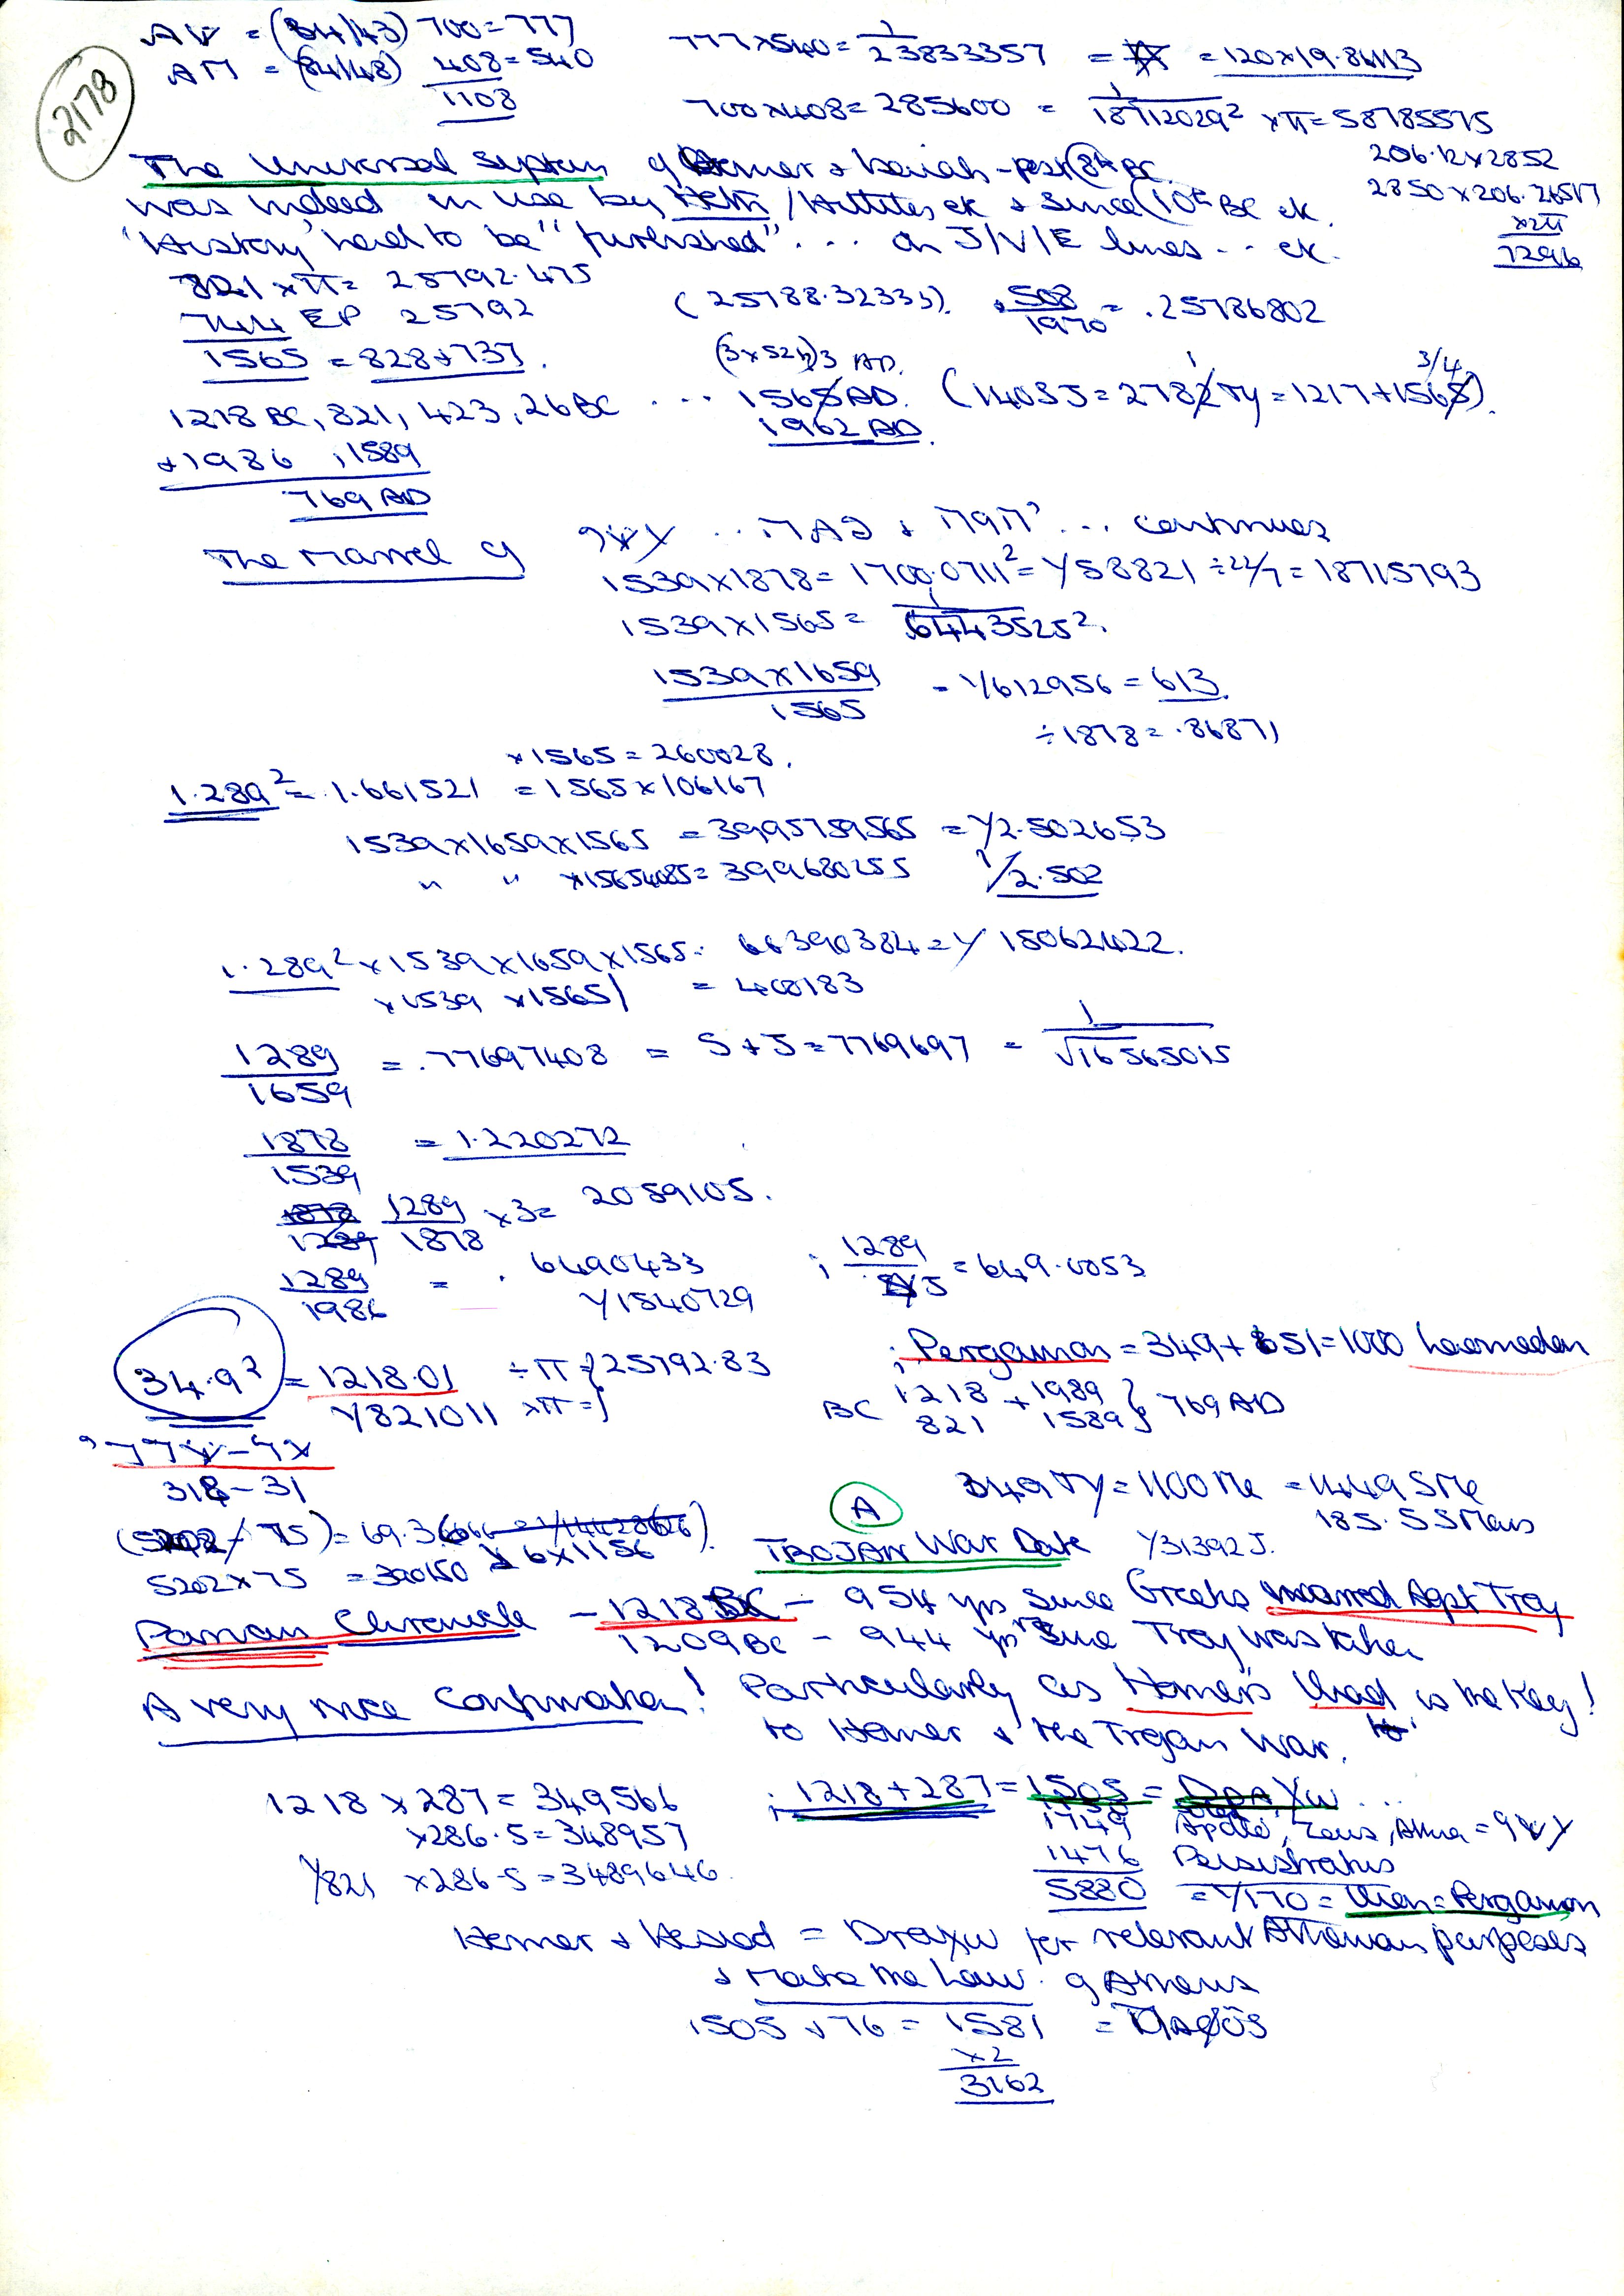 2178
AV = (84/43) 700 = 777
AM = (84/48) 408 = 540
1108
777 x 540 = 1/23833357 = = 120 x 19.86113
700 x 408 = 285600 = 1/18712029² x π = 58785575
206.12 x 2852
2850 x 206.26517
x 2π
7296
The Universal System of Homer & - post 8th BC
was indeed in use by / Hittites etc & since (10th BC etc.
'History' had to be "furnished" ... on J/V/E lines .. etc.
821 x π = 25792.475
744 EP 25792
(25788.32333). .508/1970 = .25786802
1565 = 828 + 737.
(3 x 521)3 AD.
1218 BC, 821, 423, 26 BC ... 1565 AD. (1403 J = 2782 Ty = 1217 + 1565). 3/4
1962 AD.
+1986, 1589
769 AD
The Marvel of ... continues
1539 x 1878 = 1700.0711² = Y58821 ÷ 22/7 = 18715793
1539 x 1565 = 1/6443525².
1539 x 1659 / 1565 = Y612956 = 613.
÷ 1878 = .86871
x 1565 = 260028.
1.289² = 1.661521 = 1565 x 106167
1539 x 1659 x 1565 = 3995759565 = Y2.502653
" " x 15654085 = 399680255 1/2.502
1.289² x 1539 x 1659 x 1565 = 66390384 = Y 15062422.
x 1539 x 1565 = 400183
1289/1659 = .77697408 = S + J = 7769697 = 1/√16565015
1878/1539 = 1.220272
1289/1878 x 3 = 2059105.
1289/1986 = .6490433 ; 1289/J = 649.0053
Y1540729
34.9² = 1218.01 ÷ π = } 25792.83
Y821011 x π = }
; Pergamon = 349 + 651 = 1000 Laomedon
BC 1218 + 1989 } 769 AD
821 1589 }
318 - 31
349 Ty = 1100 Me = 1449 SMe
185.5 SMars
(5202/75) = 69.36
5202 x 75 = 390150 6 x 1156
A
TROJAN War Date Y31392 J.
Parian Chronicle - 1218 BC - 954 yrs since Greeks marched Agst Troy
1209 BC - 944 yrs since Troy was taken
A very nice confirmation! Particularly as Homer's Iliad is the Key!
to Homer & the Trojan War.
1218 x 287 = 349566 ; 1218 + 287 = 1505 = Dραχω ...
x 286.5 = 348957 1749 Apollo, Zeus, Athena =
Y821 x 286.5 = 3489646 1476 Peisistratus
5880 = Y170 = Ilion = Pergamon
Homer & Hesiod = Draxw for relevant Athenian purposes
& Make the Law of Athens
1505 + 76 = 1581 =
x 2
3162